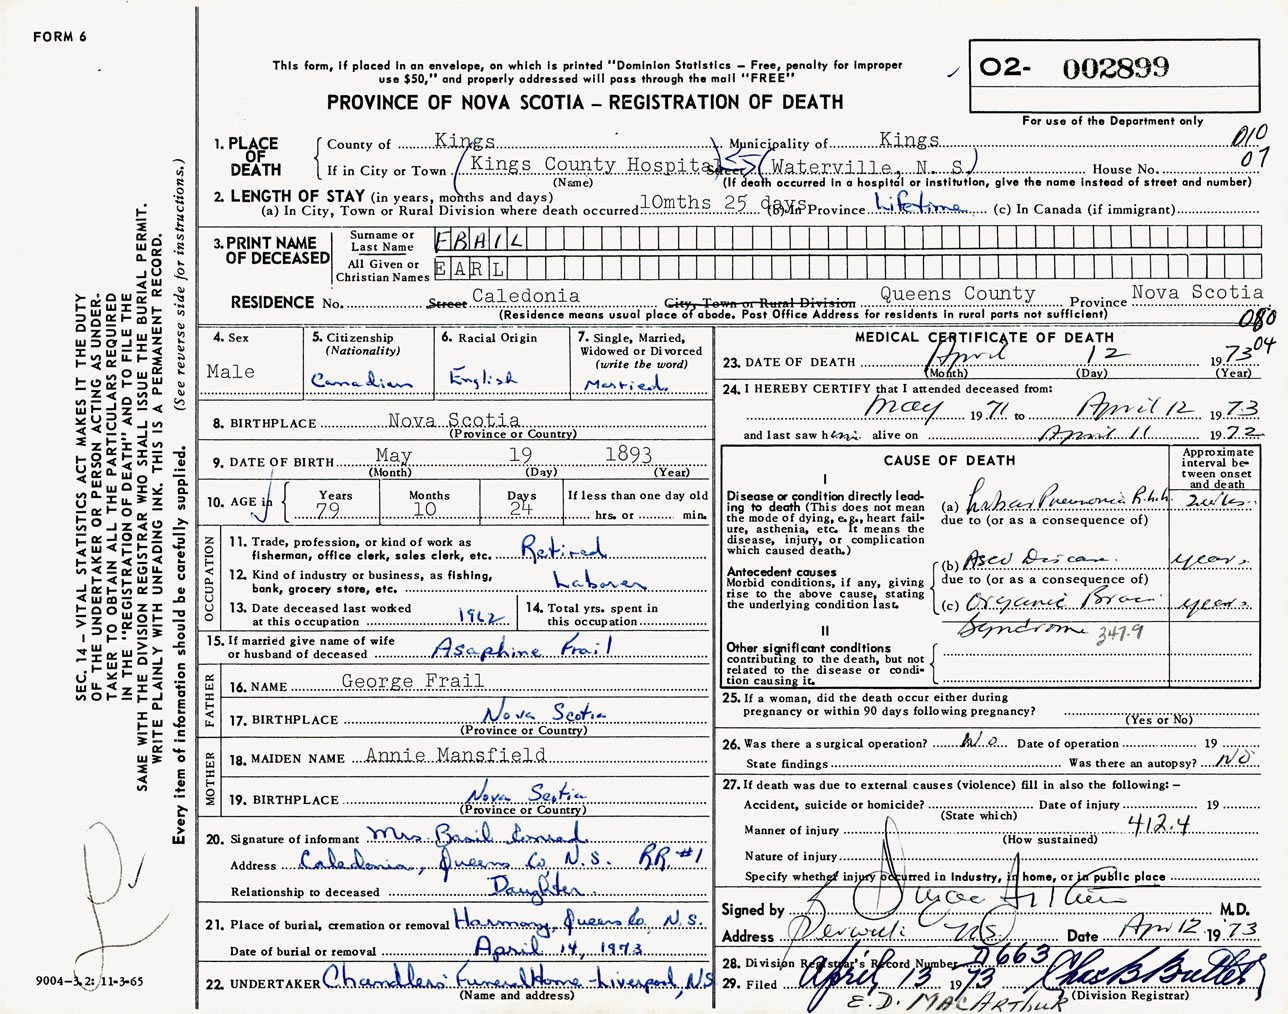 FORM 6
This form, if placed in an envelope, on which is printed "Dominion Statistics – Free, penalty for improper
use $50," and properly addressed will pass through the mail "FREE"
PROVINCE OF NOVA SCOTIA – REGISTRATION OF DEATH
O2- 002899
For use of the Department only
010
07
1. PLACE OF DEATH
County of Kings Municipality of Kings
If in City or Town Kings County Hospital Street (Waterville, N. S.) House No.
(Name) (If death occurred in a hospital or institution, give the name instead of street and number)
2. LENGTH OF STAY (in years, months and days)
(a) In City, Town or Rural Division where death occurred 10mths 25 days (b) In Province Lifetime (c) In Canada (if immigrant)
3. PRINT NAME OF DECEASED
Surname or Last Name FRAIL
All Given or Christian Names EARL
RESIDENCE No. Street Caledonia City, Town or Rural Division Queens County Province Nova Scotia
(Residence means usual place of abode. Post Office Address for residents in rural parts not sufficient)
080
04
4. Sex
Male
5. Citizenship
(Nationality)
Canadian
6. Racial Origin
English
7. Single, Married,
Widowed or Divorced
(write the word)
Married
8. BIRTHPLACE Nova Scotia
(Province or Country)
9. DATE OF BIRTH May 19 1893
(Month) (Day) (Year)
10. AGE in
Years Months Days If less than one day old
79 10 24 hrs. or min.
OCCUPATION
11. Trade, profession, or kind of work as
fisherman, office clerk, sales clerk, etc. Retired
12. Kind of industry or business, as fishing,
bank, grocery store, etc. Laborer
13. Date deceased last worked
at this occupation 1962
14. Total yrs. spent in
this occupation
15. If married give name of wife
or husband of deceased Asaphine Frail
FATHER
16. NAME George Frail
17. BIRTHPLACE Nova Scotia
(Province or Country)
MOTHER
18. MAIDEN NAME Annie Mansfield
19. BIRTHPLACE Nova Scotia
(Province or Country)
20. Signature of informant Mrs. Basil Conrad
Address Caledonia, Queens Co N.S. RR #1
Relationship to deceased Daughter
21. Place of burial, cremation or removal Harmony, Queens Co, N.S.
Date of burial or removal April 14, 1973
22. UNDERTAKER Chandlers' Funeral Home - Liverpool, N.S
(Name and address)
MEDICAL CERTIFICATE OF DEATH
23. DATE OF DEATH April 12 1973
(Month) (Day) (Year)
24. I HEREBY CERTIFY that I attended deceased from:
May 1971 to April 12 1973
and last saw him alive on April 11 1972
CAUSE OF DEATH
Approximate
interval be-
tween onset
and death
I
Disease or condition directly lead-
ing to death (This does not mean
the mode of dying, e.g., heart fail-
ure, asthenia, etc. It means the
disease, injury, or complication
which caused death.)
(a) Lobar Pneumonia 2 wks.
due to (or as a consequence of)
Antecedent causes
Morbid conditions, if any, giving
rise to the above cause, stating
the underlying condition last.
(b) Ascv Disease years
due to (or as a consequence of)
(c) Organic Brain years
Syndrome 347.9
II
Other significant conditions
contributing to the death, but not
related to the disease or condi-
tion causing it.
25. If a woman, did the death occur either during
pregnancy or within 90 days following pregnancy?
(Yes or No)
26. Was there a surgical operation? No Date of operation 19
State findings Was there an autopsy? No
27. If death was due to external causes (violence) fill in also the following: –
Accident, suicide or homicide? Date of injury 19
(State which)
Manner of injury 412.4
(How sustained)
Nature of injury
Specify whether injury occurred in industry, in home, or in public place
Signed by M.D.
Address Berwick N.S. Date Apr 12 1973
28. Division Registrar's Record Number 7663
29. Filed April 13 1973
(Division Registrar)
E. D. MACARTHUR
SEC. 14 – VITAL STATISTICS ACT MAKES IT THE DUTY
OF THE UNDERTAKER OR PERSON ACTING AS UNDER-
TAKER TO OBTAIN ALL THE PARTICULARS REQUIRED
IN THE "REGISTRATION OF DEATH" AND TO FILE THE
SAME WITH THE DIVISION REGISTRAR WHO SHALL ISSUE THE BURIAL PERMIT.
WRITE PLAINLY WITH UNFADING INK. THIS IS A PERMANENT RECORD.
Every item of information should be carefully supplied. (See reverse side for instructions.)
9004-3.2: 11-3-65